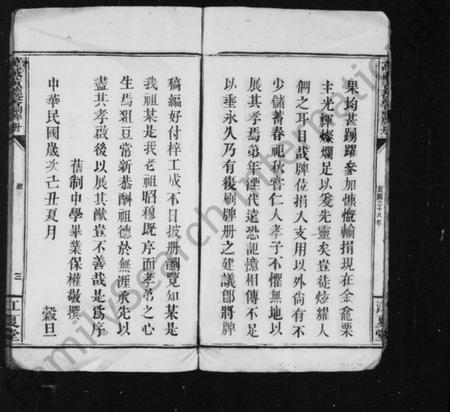 果均甚踴躍參加慷慨輸捐現在金龕栗
主光輝燦爛足以妥先靈矣豈徒炫耀人
們之耳目哉牌位捐入支用以外尚有不
少儲蓄春祀秋嘗仁人孝子不懼無地以
展其孝焉弟年湮代遠恐記憶相傳不足
以垂永久乃有復刷牌册之建議卽將牌
稿編好付梓工成不日披册瀏覽知某是
我祖某是我老祖昭穆既序而孝弟之心
生焉俎豆常新恭酬祖德於無涯承先以
盡其孝啟後以展其猷豈不善哉是爲序
舊制中學畢業保權敬撰
中華民國歲次己丑夏月 穀旦
序
三
江夏堂